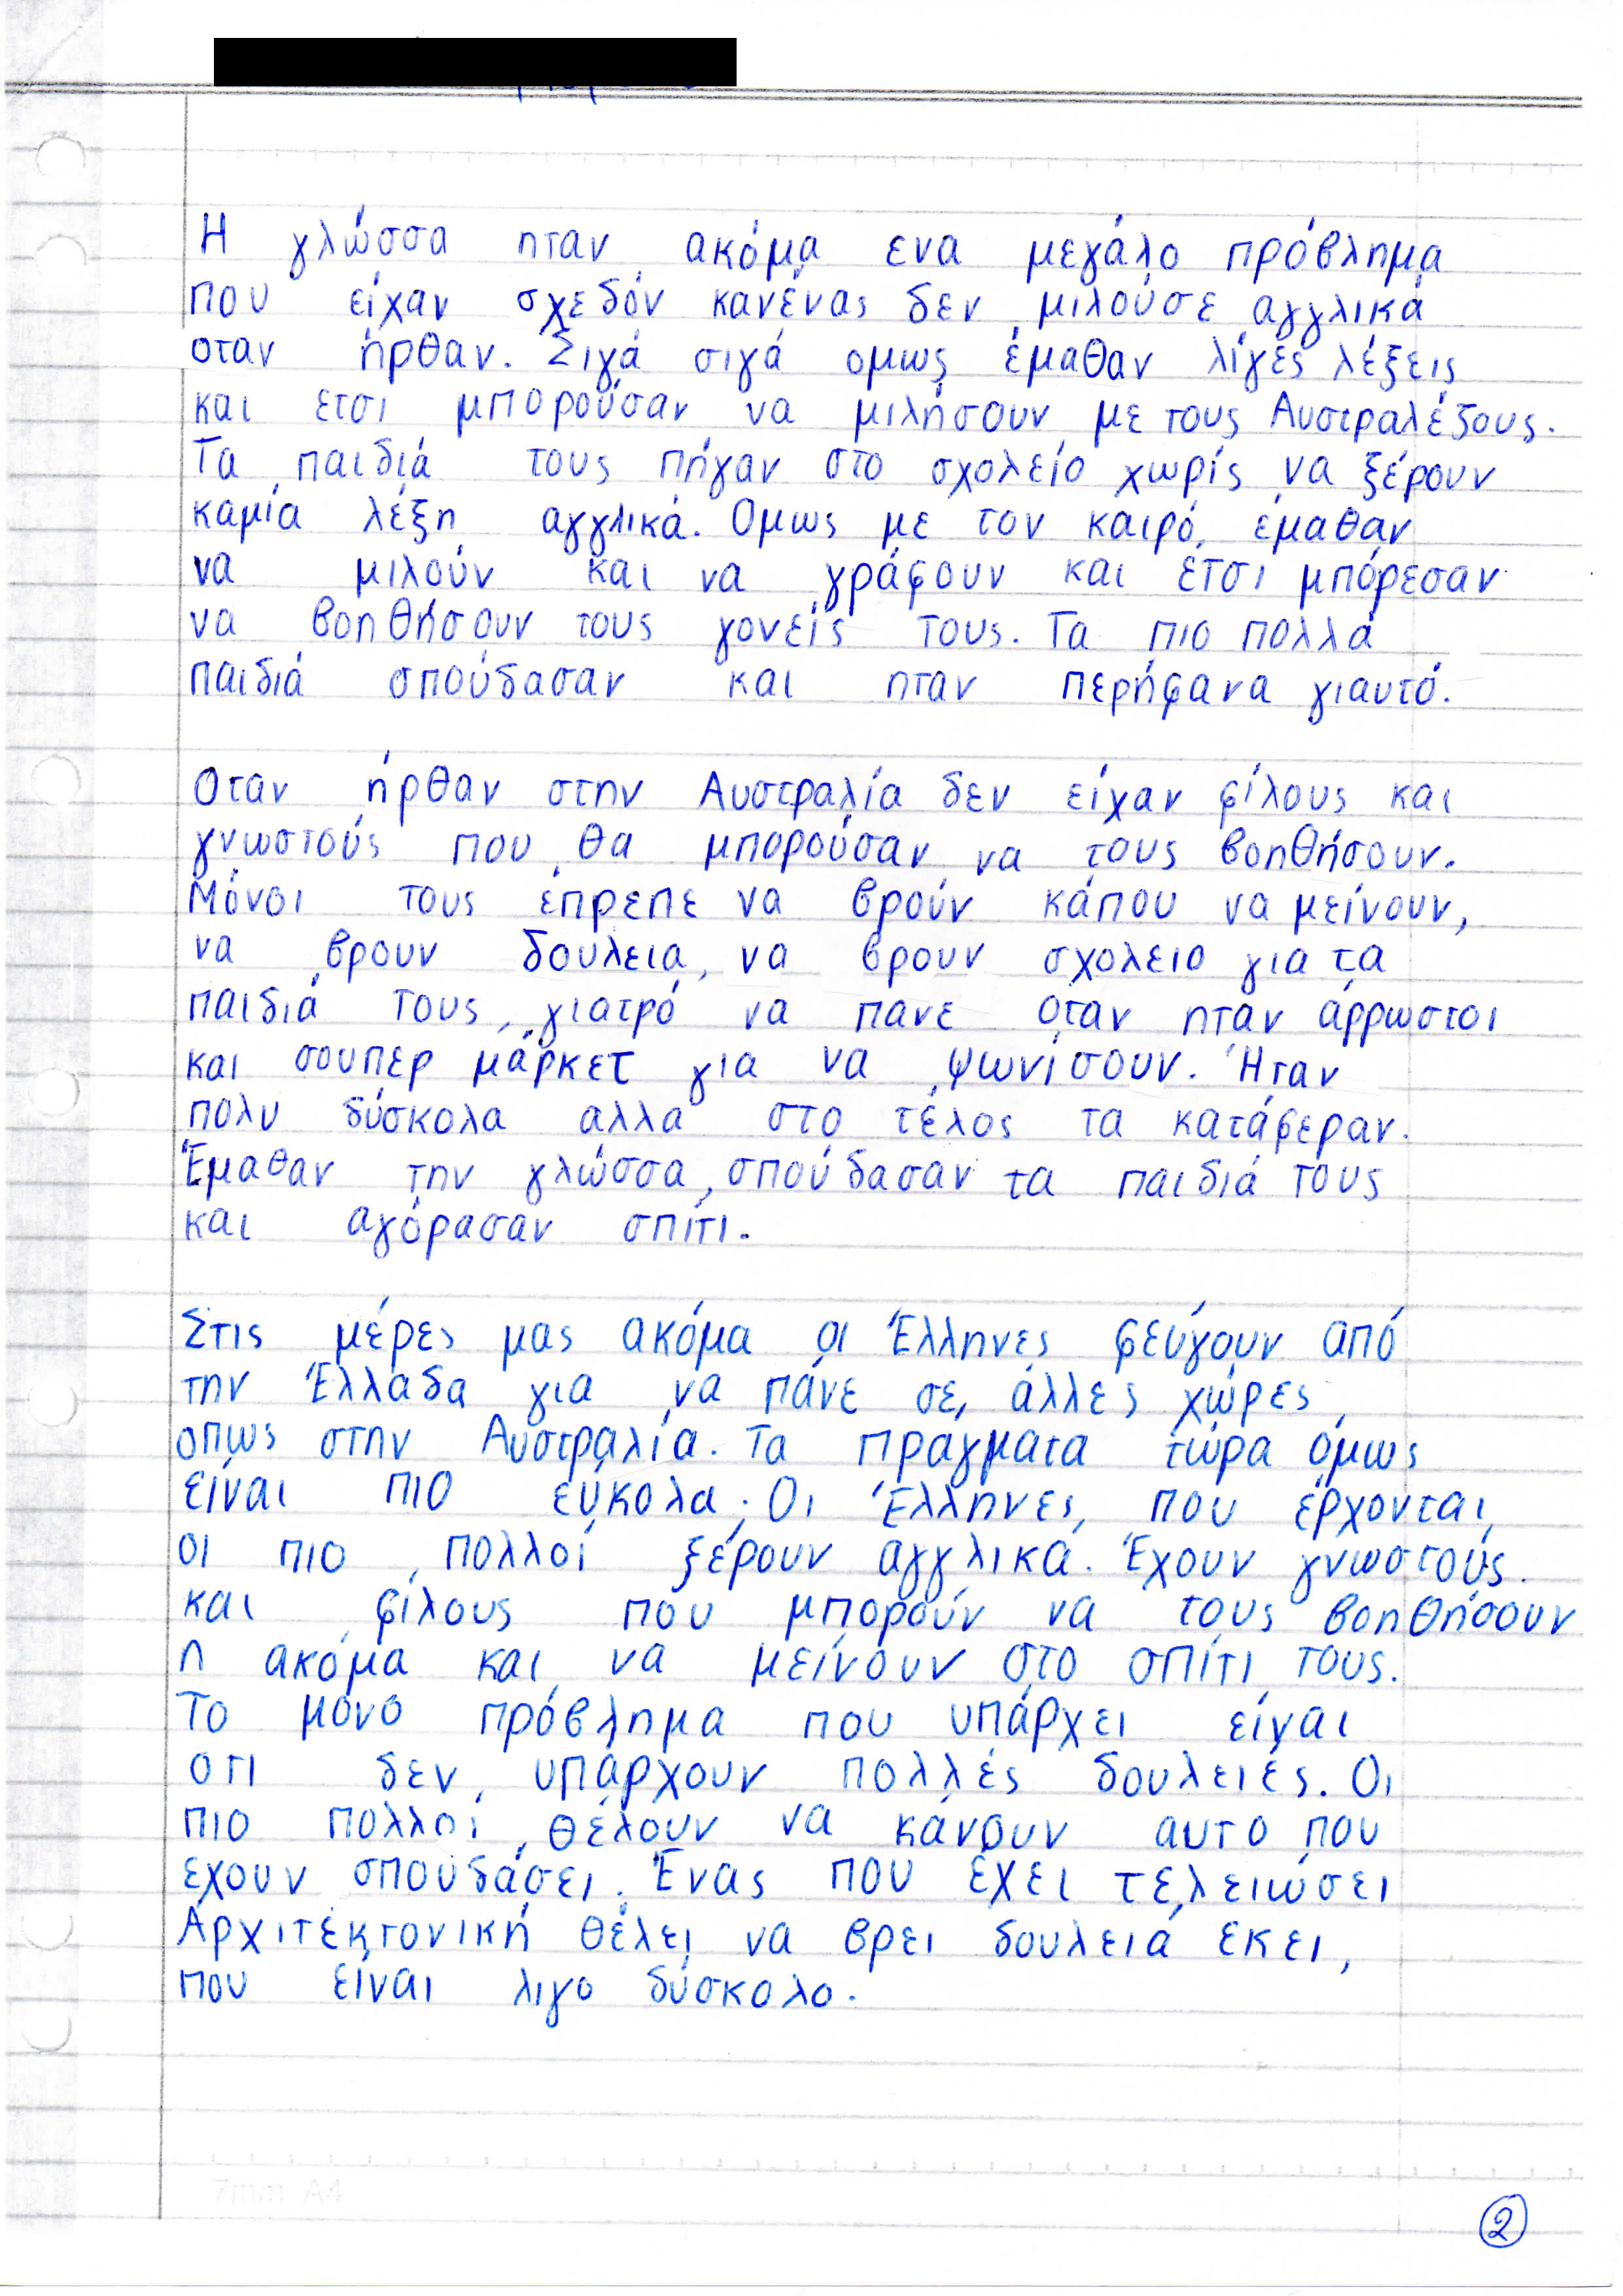 Η γλώσσα ηταν ακόμα ενα μεγάλο πρόβλημα
που είχαν σχεδόν κανένας δεν μιλούσε αγγλικά
οταν ήρθαν. Σιγά σιγά ομως έμαθαν λίγές λέξεις
και ετσι μπορούσαν να μιλήσουν με τους Αυστραλέζους.
Τα παιδιά τους πήγαν στο σχολείο χωρίς να ξέρουν
καμία λέξη αγγλικά. Ομως με τον καιρό, έμαθαν
να μιλούν και να γράφουν και έτσι μπόρεσαν
να βοηθήσουν τους γονείς τους. Τα πιο πολλά
παιδιά σπούδασαν και ηταν περήφανα γιαυτό.
Οταν ήρθαν στην Αυστραλία δεν είχαν φίλους και
γνωστούς που θα μπορούσαν να τους βοηθήσουν.
Μόνοι τους έπρεπε να βρούν κάπου να μείνουν,
να βρουν δουλεια, να βρουν σχολειο για τα
παιδιά τους, γιατρό να πανε όταν ηταν άρρωστοι
και σουπερ μάρκετ για να ψωνίσουν. Ήταν
πολυ δύσκολα αλλα στο τέλος τα κατάφεραν.
Έμαθαν την γλώσσα, σπούδασαν τα παιδιά τους
και αγόρασαν σπίτι.
Στις μέρες μας ακόμα οι Έλληνες φεύγουν από
την Έλλαδα για να πάνε σε άλλες χώρες
οπως στην Αυστραλία. Τα πραγματα τώρα όμως
είναι πιο εύκολα. Οι Έλληνες που έρχονται,
οι πιο πολλοί ξέρουν αγγλικά. Έχουν γνωστούς.
και φίλους που μπορούν να τους βοηθήσουν
η ακόμα και να μείνουν στο σπίτι τους.
Το μόνο πρόβλημα που υπάρχει είναι
οτι δεν υπάρχουν πολλές δουλειές. Οι
πιο πολλοί θέλουν να κάνουν αυτο που
εχουν σπουδάσει. Ένας που έχει τελειώσει
Αρχιτεκτονική θέλει να βρει δουλειά εκει,
που είναι λιγο δύσκολο.
7mm A4
2